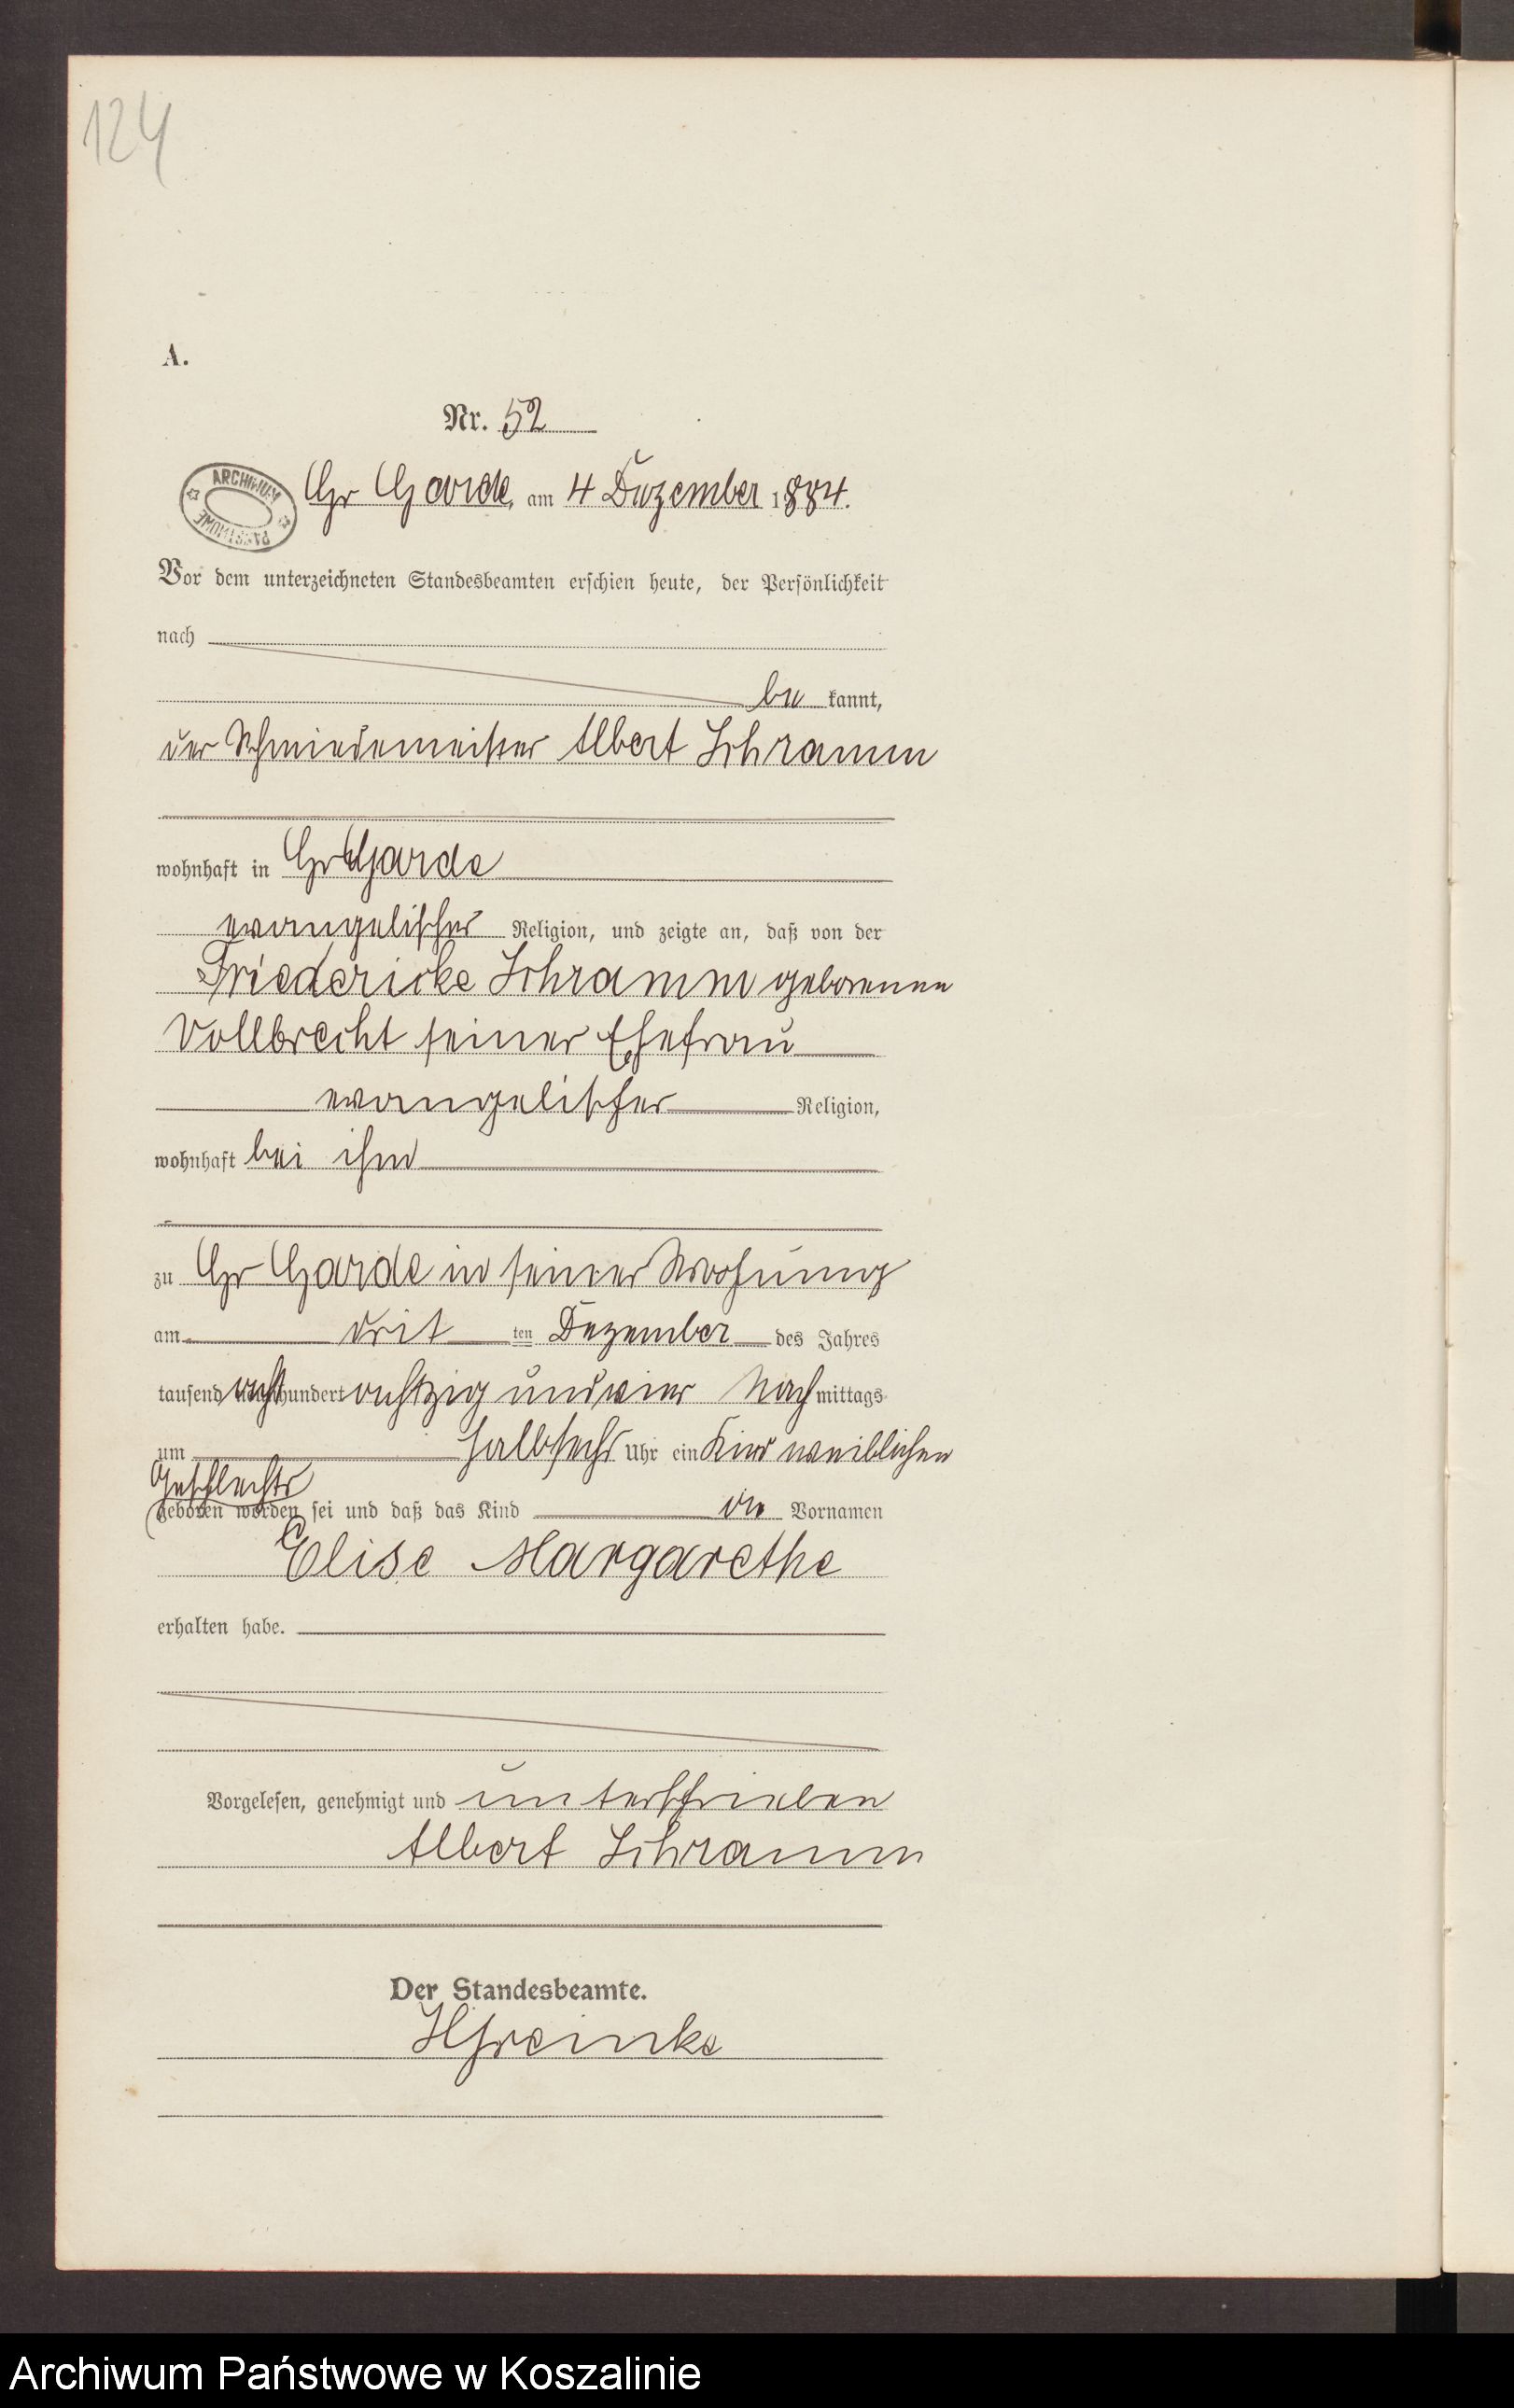 124
A.
Nr. 52
ARCHIWUM PAŃSTWOWE
Gr Garde, am 4 Dezember 1884.
Vor dem unterzeichneten Standesbeamten erschien heute, der Persönlichkeit
nach
be kannt,
der Schmiedemeister Albert Schramm
wohnhaft in Gr Garde
evangelischer Religion, und zeigte an, daß von der
Friedericke Schramm geborenen
Vollbrecht seiner Ehefrau
evangelischer Religion,
wohnhaft bei ihm
zu Gr Garde in seiner Wohnung
am drit ten Dezember des Jahres
tausend acht hundert achtzig und vier Nach mittags
um halb sechs Uhr ein Kind weiblichen
Geschlechts
geboren worden sei und daß das Kind die Vornamen
Elise Margarethe
erhalten habe.
Vorgelesen, genehmigt und unterschrieben
Albert Schramm
Der Standesbeamte.
Archiwum Państwowe w Koszalinie